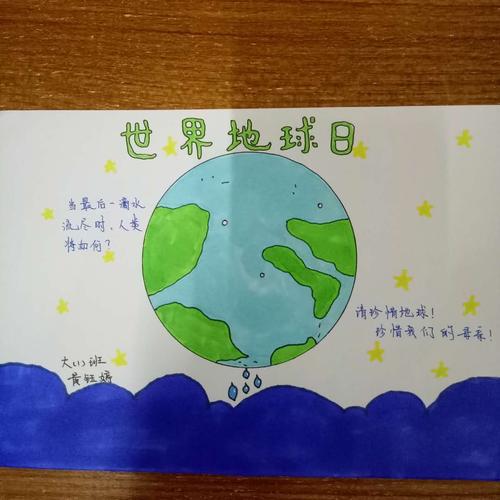 世界地球日
当最后一滴水
流尽时，人类
将如何？
请珍惜地球！
珍惜我们的母亲！
大(1)班
黄钰婷